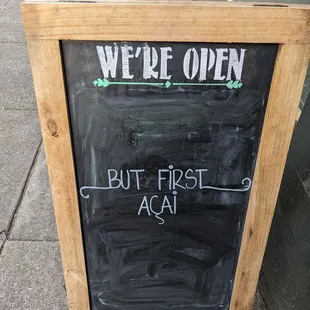 WE'RE OPEN
BUT FIRST
AÇAI